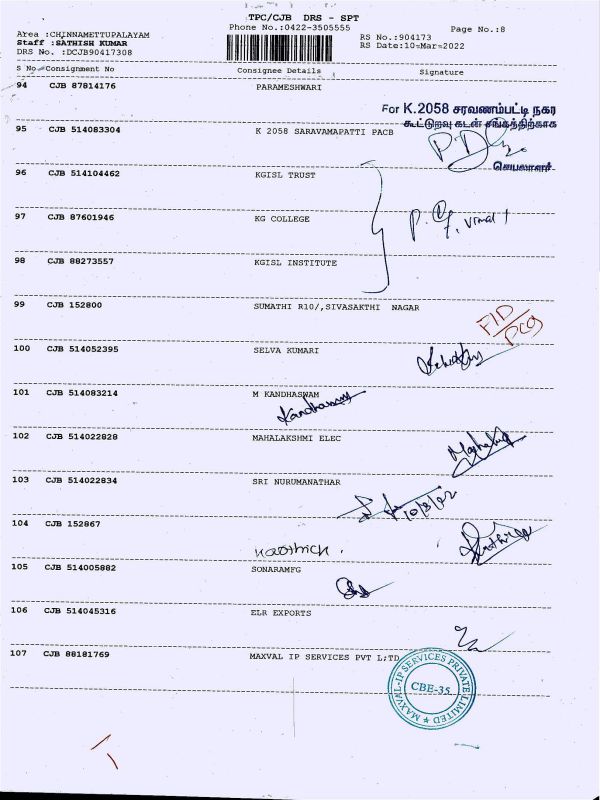 TPC/CJB DRS - SPT
Phone No.:0422-3505555
Page No.:8
Area :CHINNAMETTUPALAYAM
Staff :SATHISH KUMAR
DRS No. :DCJB90417308
RS No.:904173
RS Date:10-Mar-2022
S No Consignment No Consignee Details Signature
94 CJB 87814176 PARAMESHWARI
For K.2058 சரவணம்பட்டி நகர
கூட்டுறவு கடன் சங்கத்திற்காக
95 CJB 514083304 K 2058 SARAVAMAPATTI PACB
செயலாளர்
96 CJB 514104462 KGISL TRUST
97 CJB 87601946 KG COLLEGE
98 CJB 88273557 KGISL INSTITUTE
99 CJB 152800 SUMATHI R10/,SIVASAKTHI NAGAR
100 CJB 514052395 SELVA KUMARI
101 CJB 514083214 M KANDHASWAM
Kandhasamy
102 CJB 514022828 MAHALAKSHMI ELEC
103 CJB 514022834 SRI NURUMANATHAR
10/3/22
104 CJB 152867
Karthick.
105 CJB 514005882 SONARAMFG
106 CJB 514045316 ELR EXPORTS
107 CJB 88181769 MAXVAL IP SERVICES PVT L;TD
MAXVAL-IP SERVICES PRIVATE LIMITED
CBE-35